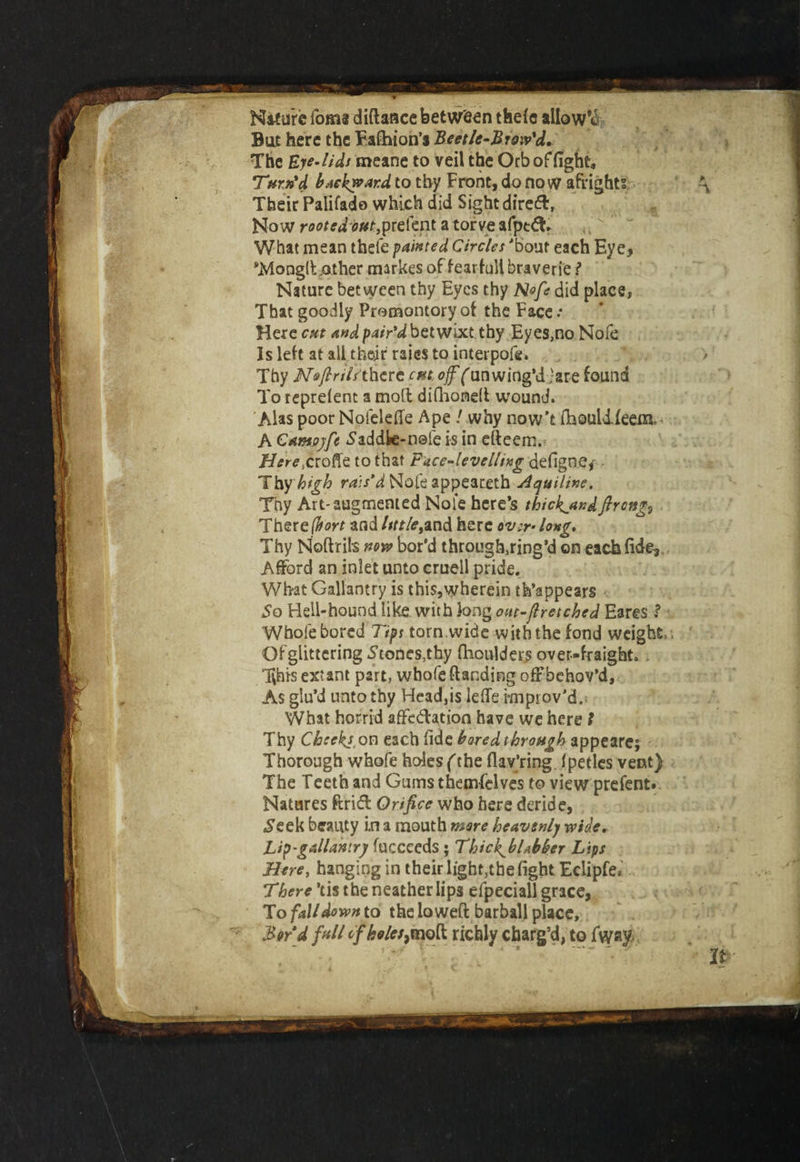 Nature ſome diſtance between theſe allow'd
But here the Faſhion's Beetle-Brow'd.
The Eye-lids meane to veil the Orb of ſight,
Turn'd backward to thy Front, do now afright:
Their Paliſado which did Sight direct,
Now rooted out, preſent a torve aſpect.
What mean theſe painted Circles 'bout each Eye,
'Mongſt other markes of fearfull braverie?
Nature between thy Eyes thy Noſe did place,
That goodly Promontory of the Face:
Here cut and pair'd betwixt thy Eyes, no Noſe
Is left at all their raies to interpoſe.
Thy Noſtrils there cut off (unwing'd) are found
To repreſent a moſt diſhoneſt wound.
Alas poor Noſeleſſe Ape! why now't ſhould ſeem.
A Camoyſe Saddle-noſe is in eſteem.
Here, croſſe to that Face-levelling deſigne,
Thy high rais'd Noſe appeareth Aquiline.
Thy Art-augmented Noſe here's thick and ſtrong,
There ſhort and little, and here over-long.
Thy Noſtrils now bor'd through, ring'd on each ſide,
Afford an inlet unto cruell pride.
What Gallantry is this, wherein th'appears
So Hell-hound like with long out-ſtretched Eares?
Whoſe bored Tips torn wide with the fond weight
Of glittering Stones, thy ſhoulders over-fraight.
This extant part, whoſe ſtanding off behov'd,
As glu'd unto thy Head, is leſſe improv'd.
What horrid affectation have we here?
Thy Cheeks on each ſide bored through appeare;
Thorough whoſe holes (the ſlav'ring ſpetles vent)
The Teeth and Gums themſelves to view preſent.
Natures ſtrict Orifice who here deride,
Seek beauty in a mouth more heavenly wide.
Lip-gallantry ſucceeds; Thick blabber Lips
Here, hanging in their light, the ſight Eclipſe.
There 'tis the neather lips eſpeciall grace,
To fall down to the loweſt barball place,
Bor'd full of holes, moſt richly charg'd, to ſway
It